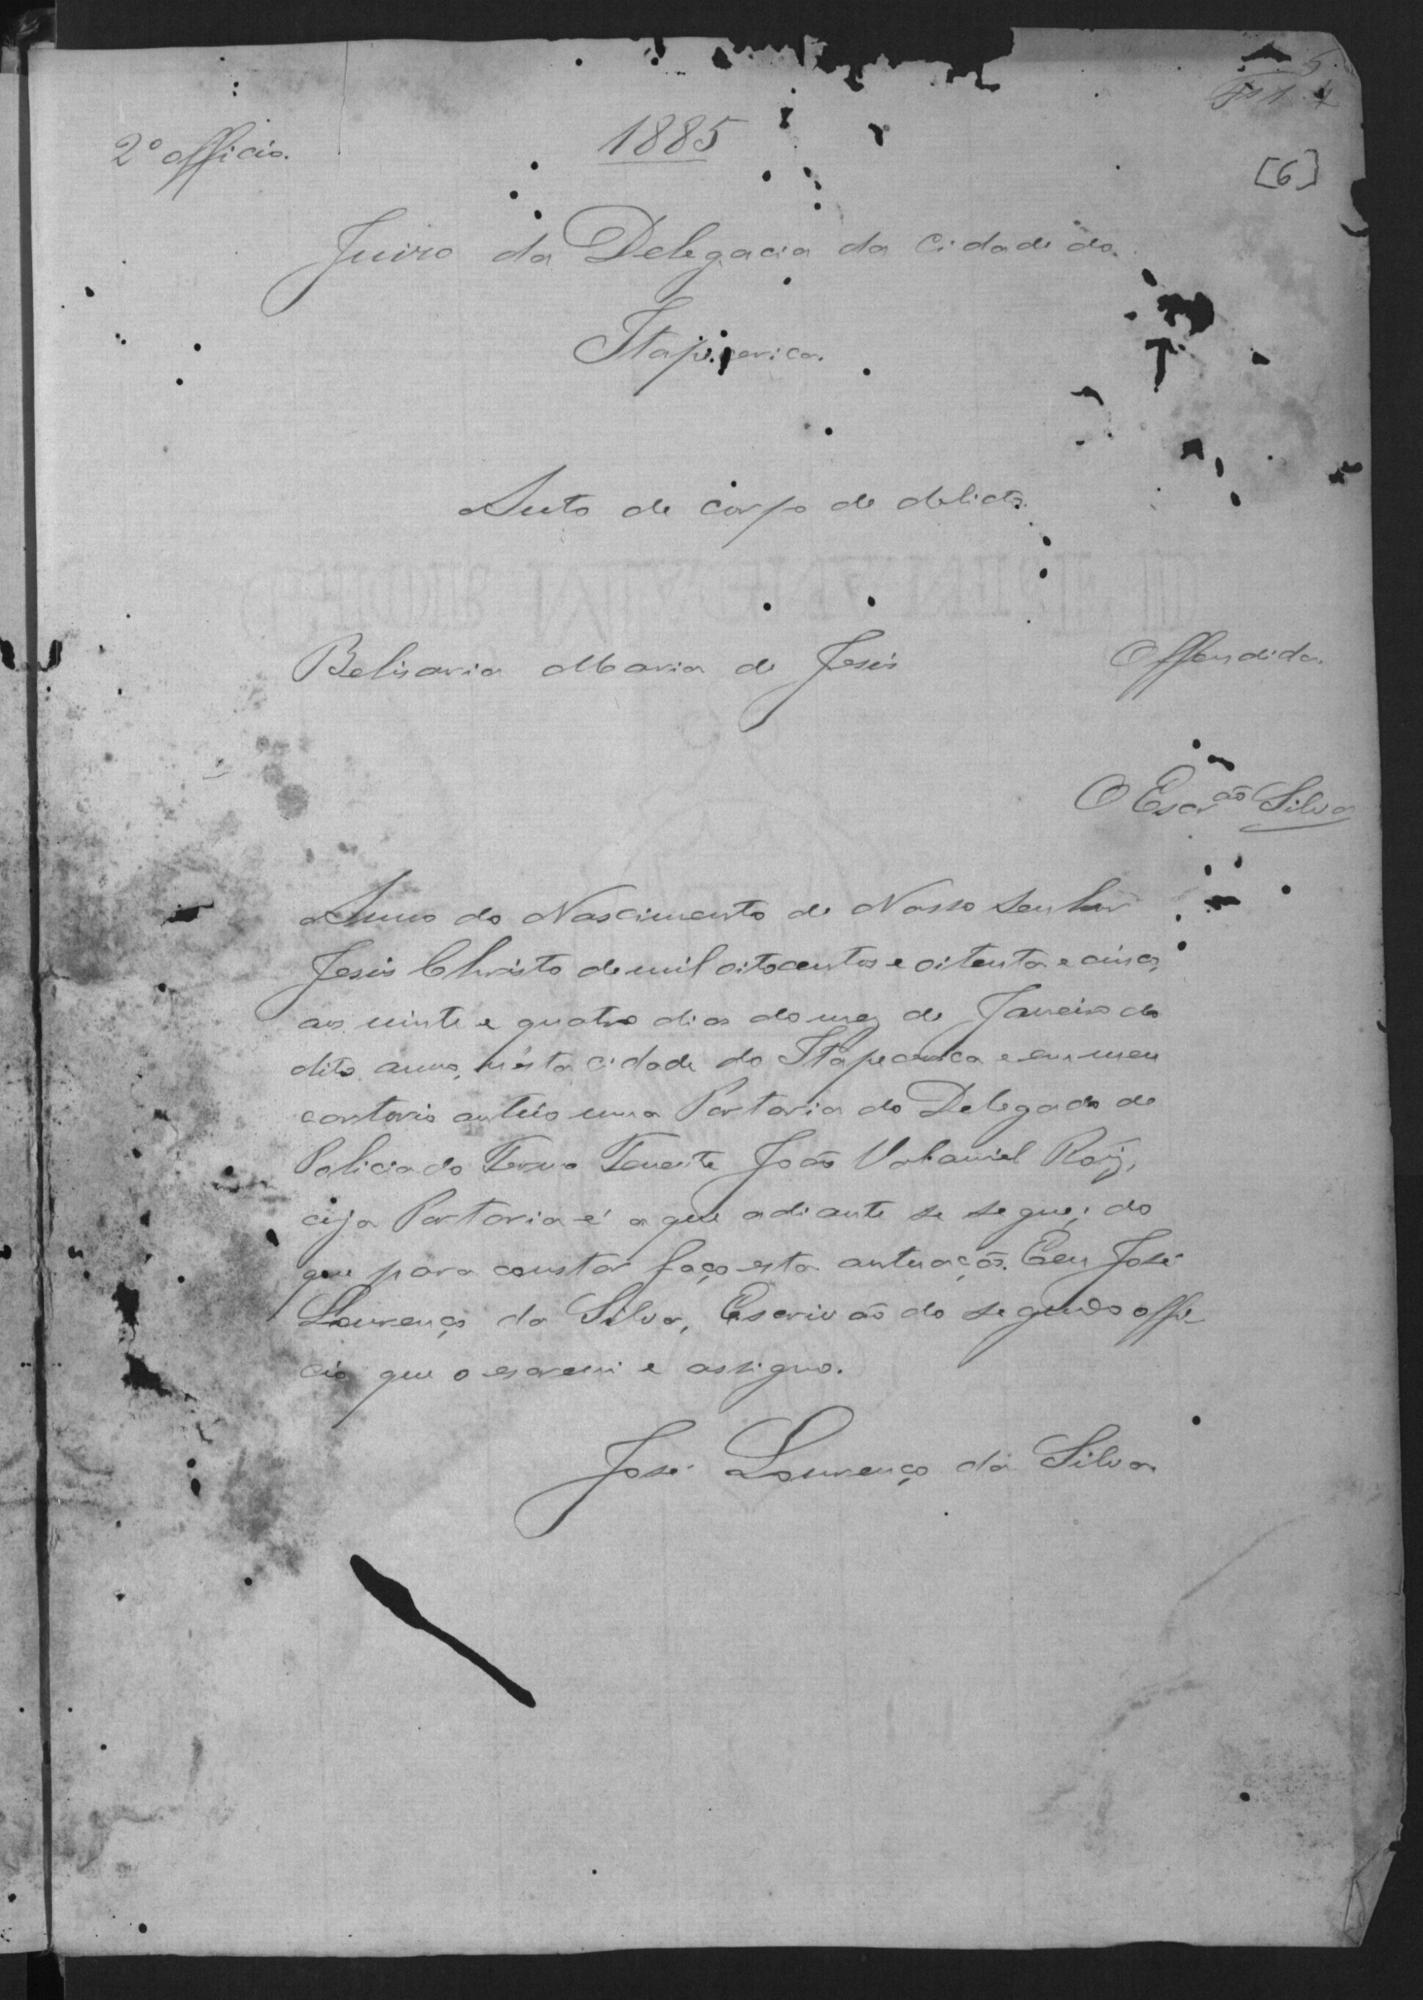 5
Fs 1
2º officio.
1885
[6]
Juizo da Delegacia da Cidade do
Itapicerica.
Auto de corpo de delicto.
Belisaria Maria de Jesus Offendida.
O Escrᵃᵒ Silva
Anno do Nascimento de Nosso Senhor
Jesus Christo de mil oitocentos e oitenta e cinco,
aos vinte e quatro dias do mez de Janeiro do
dito anno, nésta cidade do Itapecerica e em meu
cartorio autúo uma Portaria do Delegado de
Policia do Termo Tenente João Roiz,
cuja Portaria é a que adiante se segue; do
que para constar faço esta autuação. Eeu José
Lourenço da Silva, Escrivão do segundo offi-
cio que o escrevi e assigno.
José Lourenço da Silva